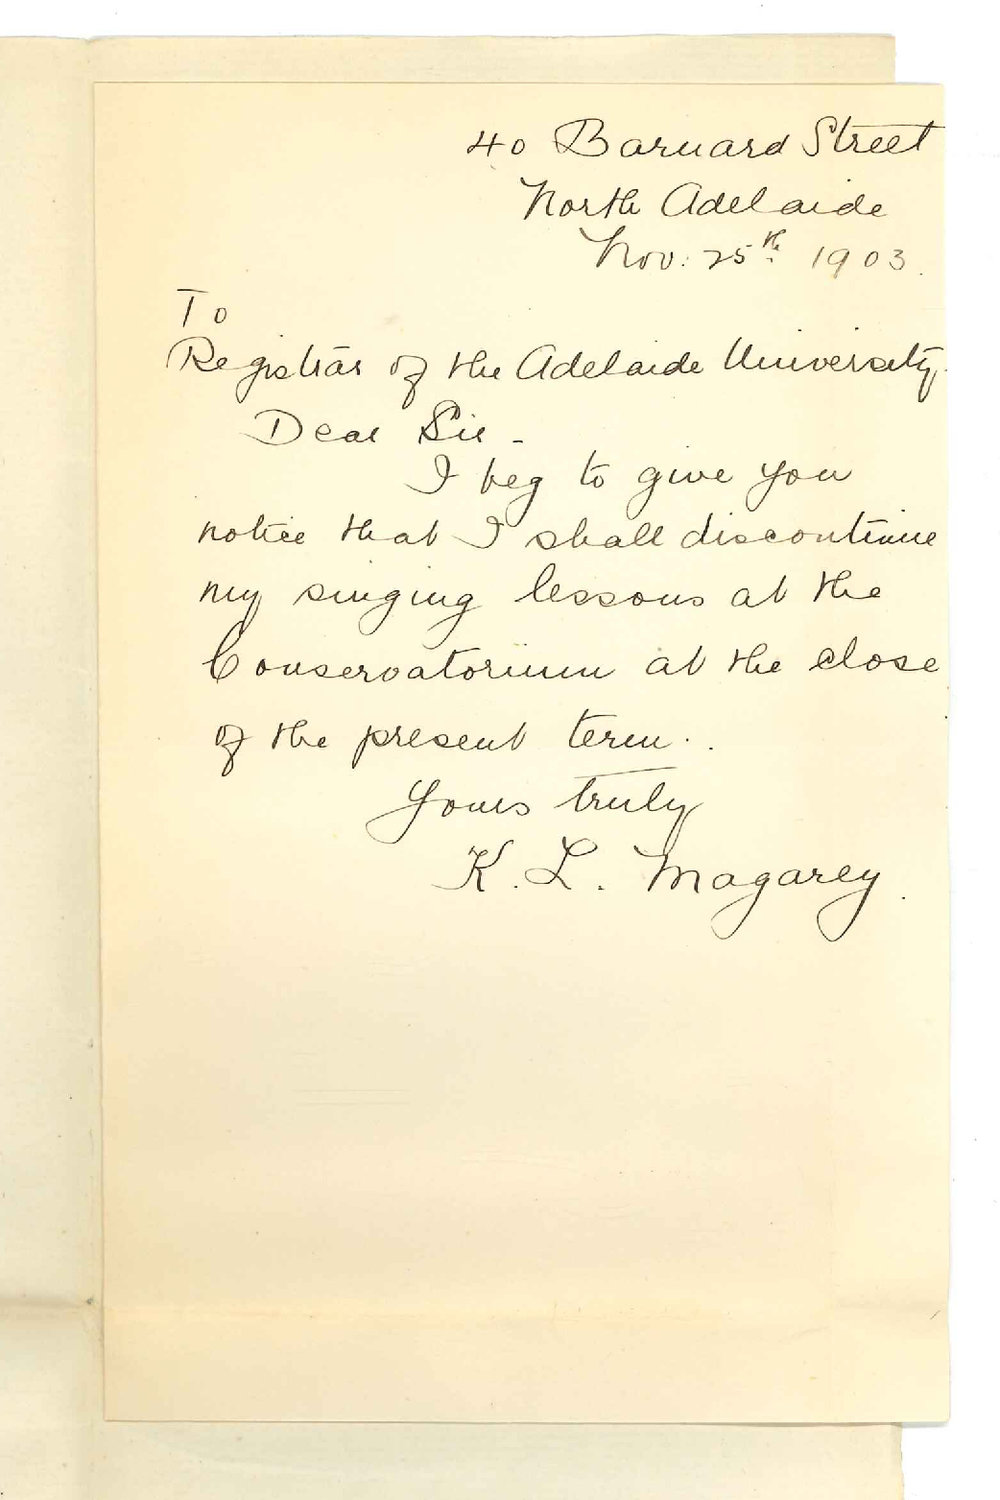 40 Barnard Street
North Adelaide
Nov: 25th 1903.
To
Registrar of the Adelaide University.
Dear Sir -
I beg to give you
notice that I shall discontinue
my singing lessons at the
Conservatorium at the close
of the present term.
Yours truly
K. L. Magarey.